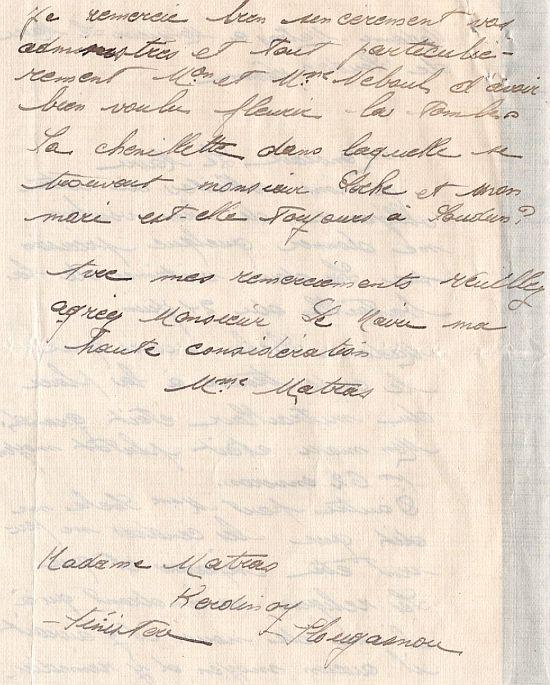 Je remercie bien sincèrement vos
administrés et tout particuliè-
rement Mon et Mme Neboul d'avoir
bien voulu fleurir la tombe.
La chenillette dans laquelle se
trouvait monsieur et mon
mari est-elle toujours à ?
Avec mes remerciements veuillez
agréez Monsieur Le Maire ma
haute considération
Mme Matras
Madame Matras
Kerdinoy
Finistère Plougasnou